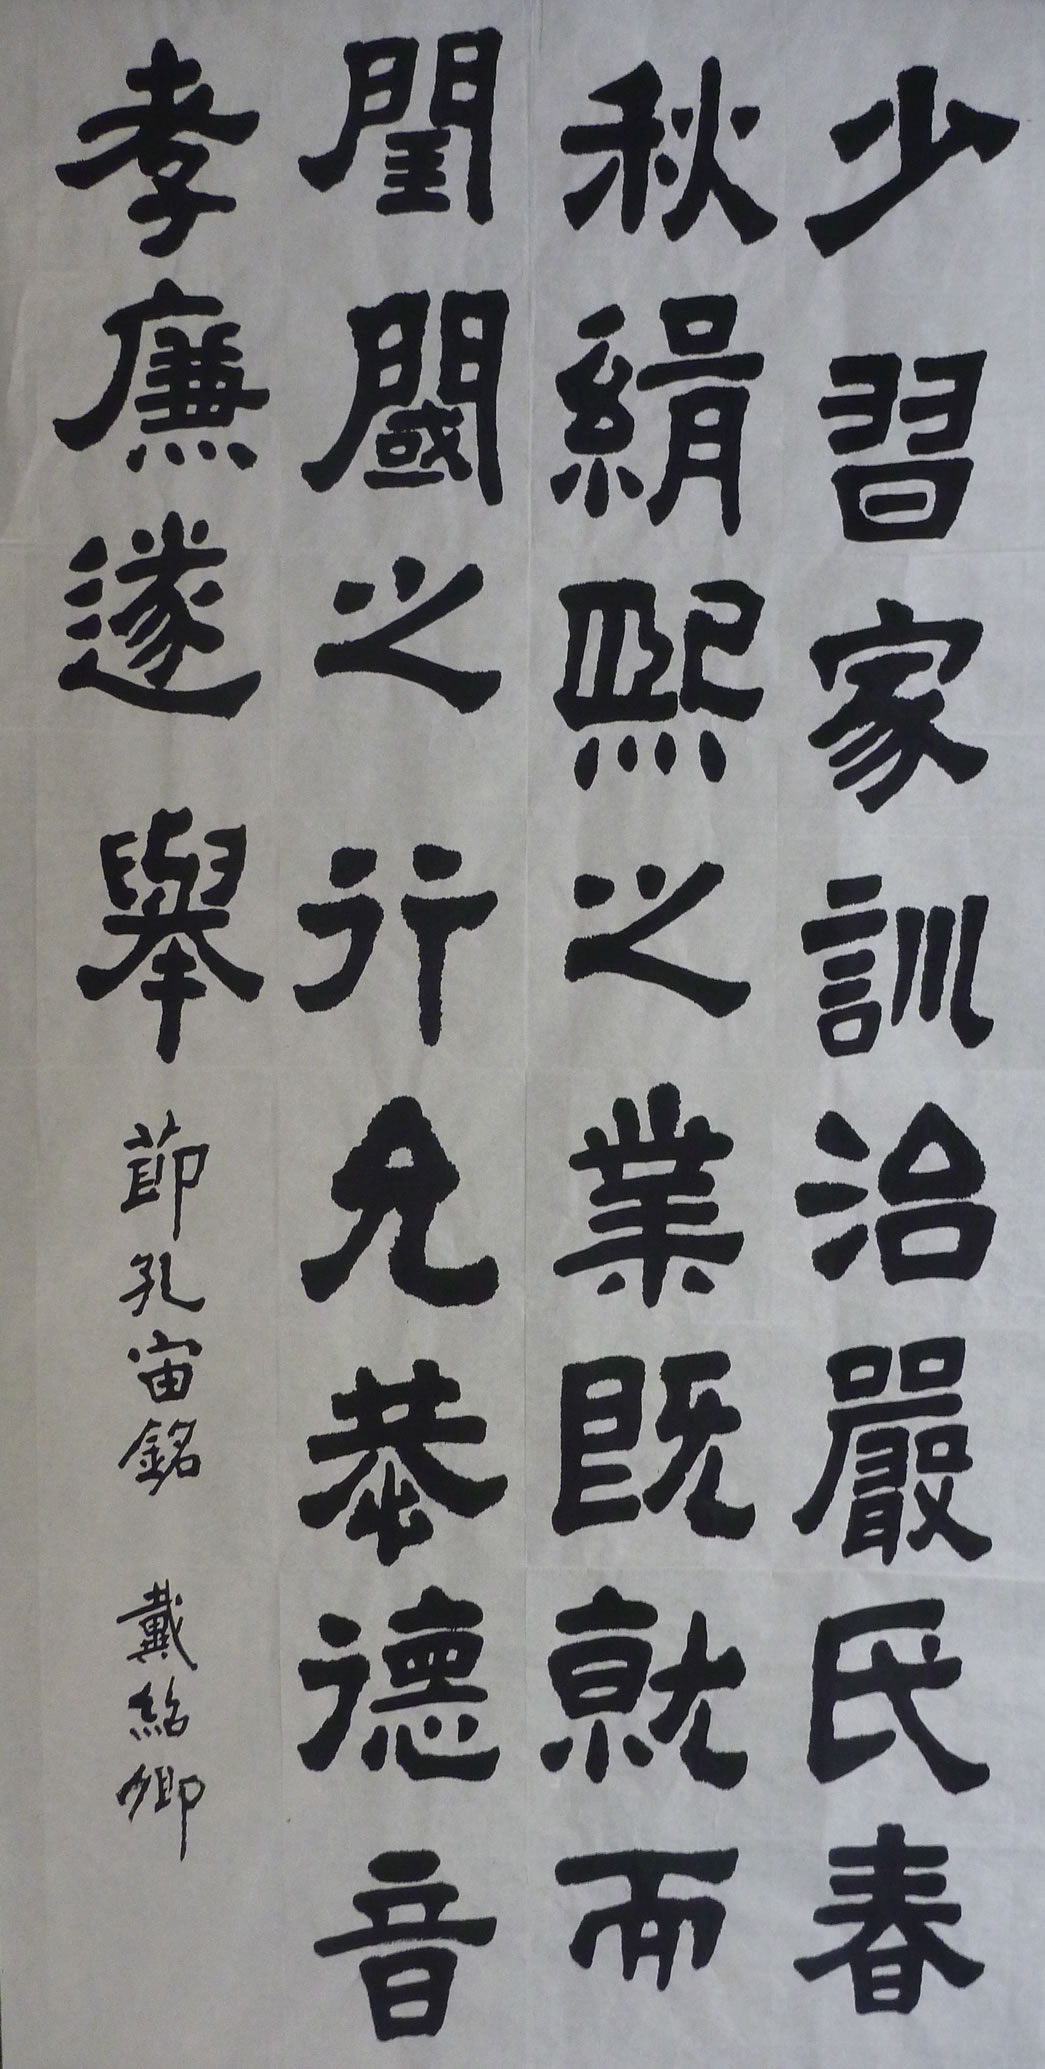 少習家訓治嚴氏春
秋緝熙之業既就而
閨閾之行允恭德音
孝廉遂舉
節孔宙銘 戴紹卿